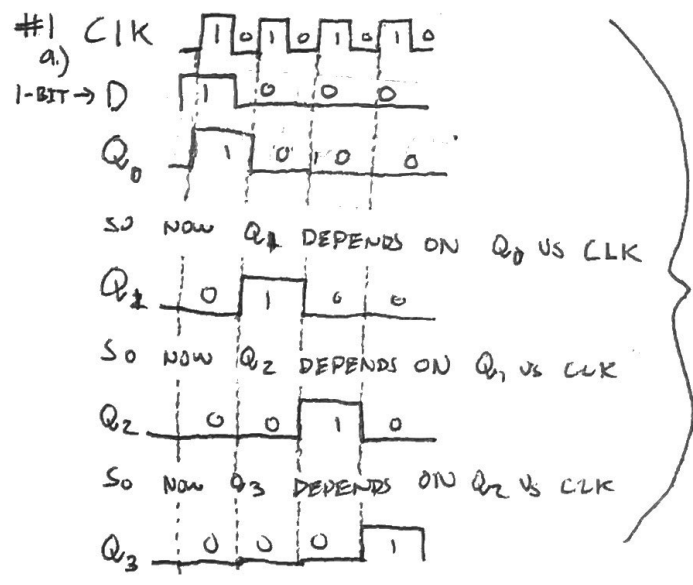 #1 CLK 1 0 1 0 1 0 1 0
a.)
1-BIT → D 1 0 0 0
Q0 1 0 0 0
SO NOW Q1 DEPENDS ON Q0 VS CLK
Q1 0 1 0 0
SO NOW Q2 DEPENDS ON Q1 VS CLK
Q2 0 0 1 0
SO NOW Q3 DEPENDS ON Q2 VS CLK
Q3 0 0 0 1